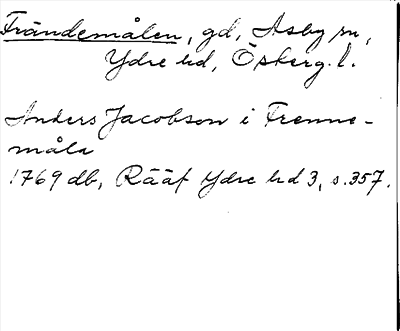 Frändemålen, gd, Asby sn,
Ydre hd, Österg. l.
Anders Jacobson i Frenne-
måla
1769 db, Rääf Ydre hd 3, s. 357.